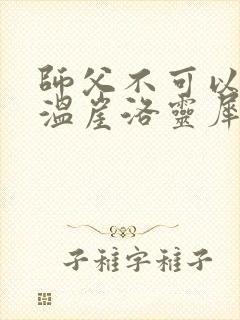 師父不可以
溫崖洛靈犀
子稚字稚子